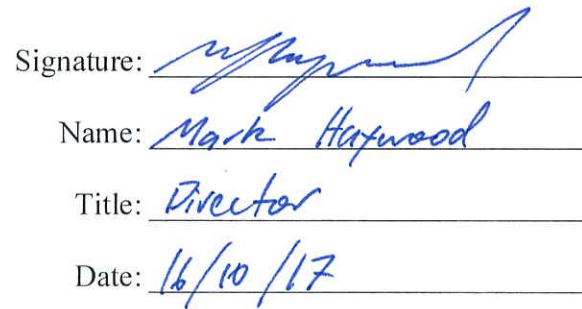 Signature:
Name: Mark Haywood
Title: Director
Date: 16/10/17